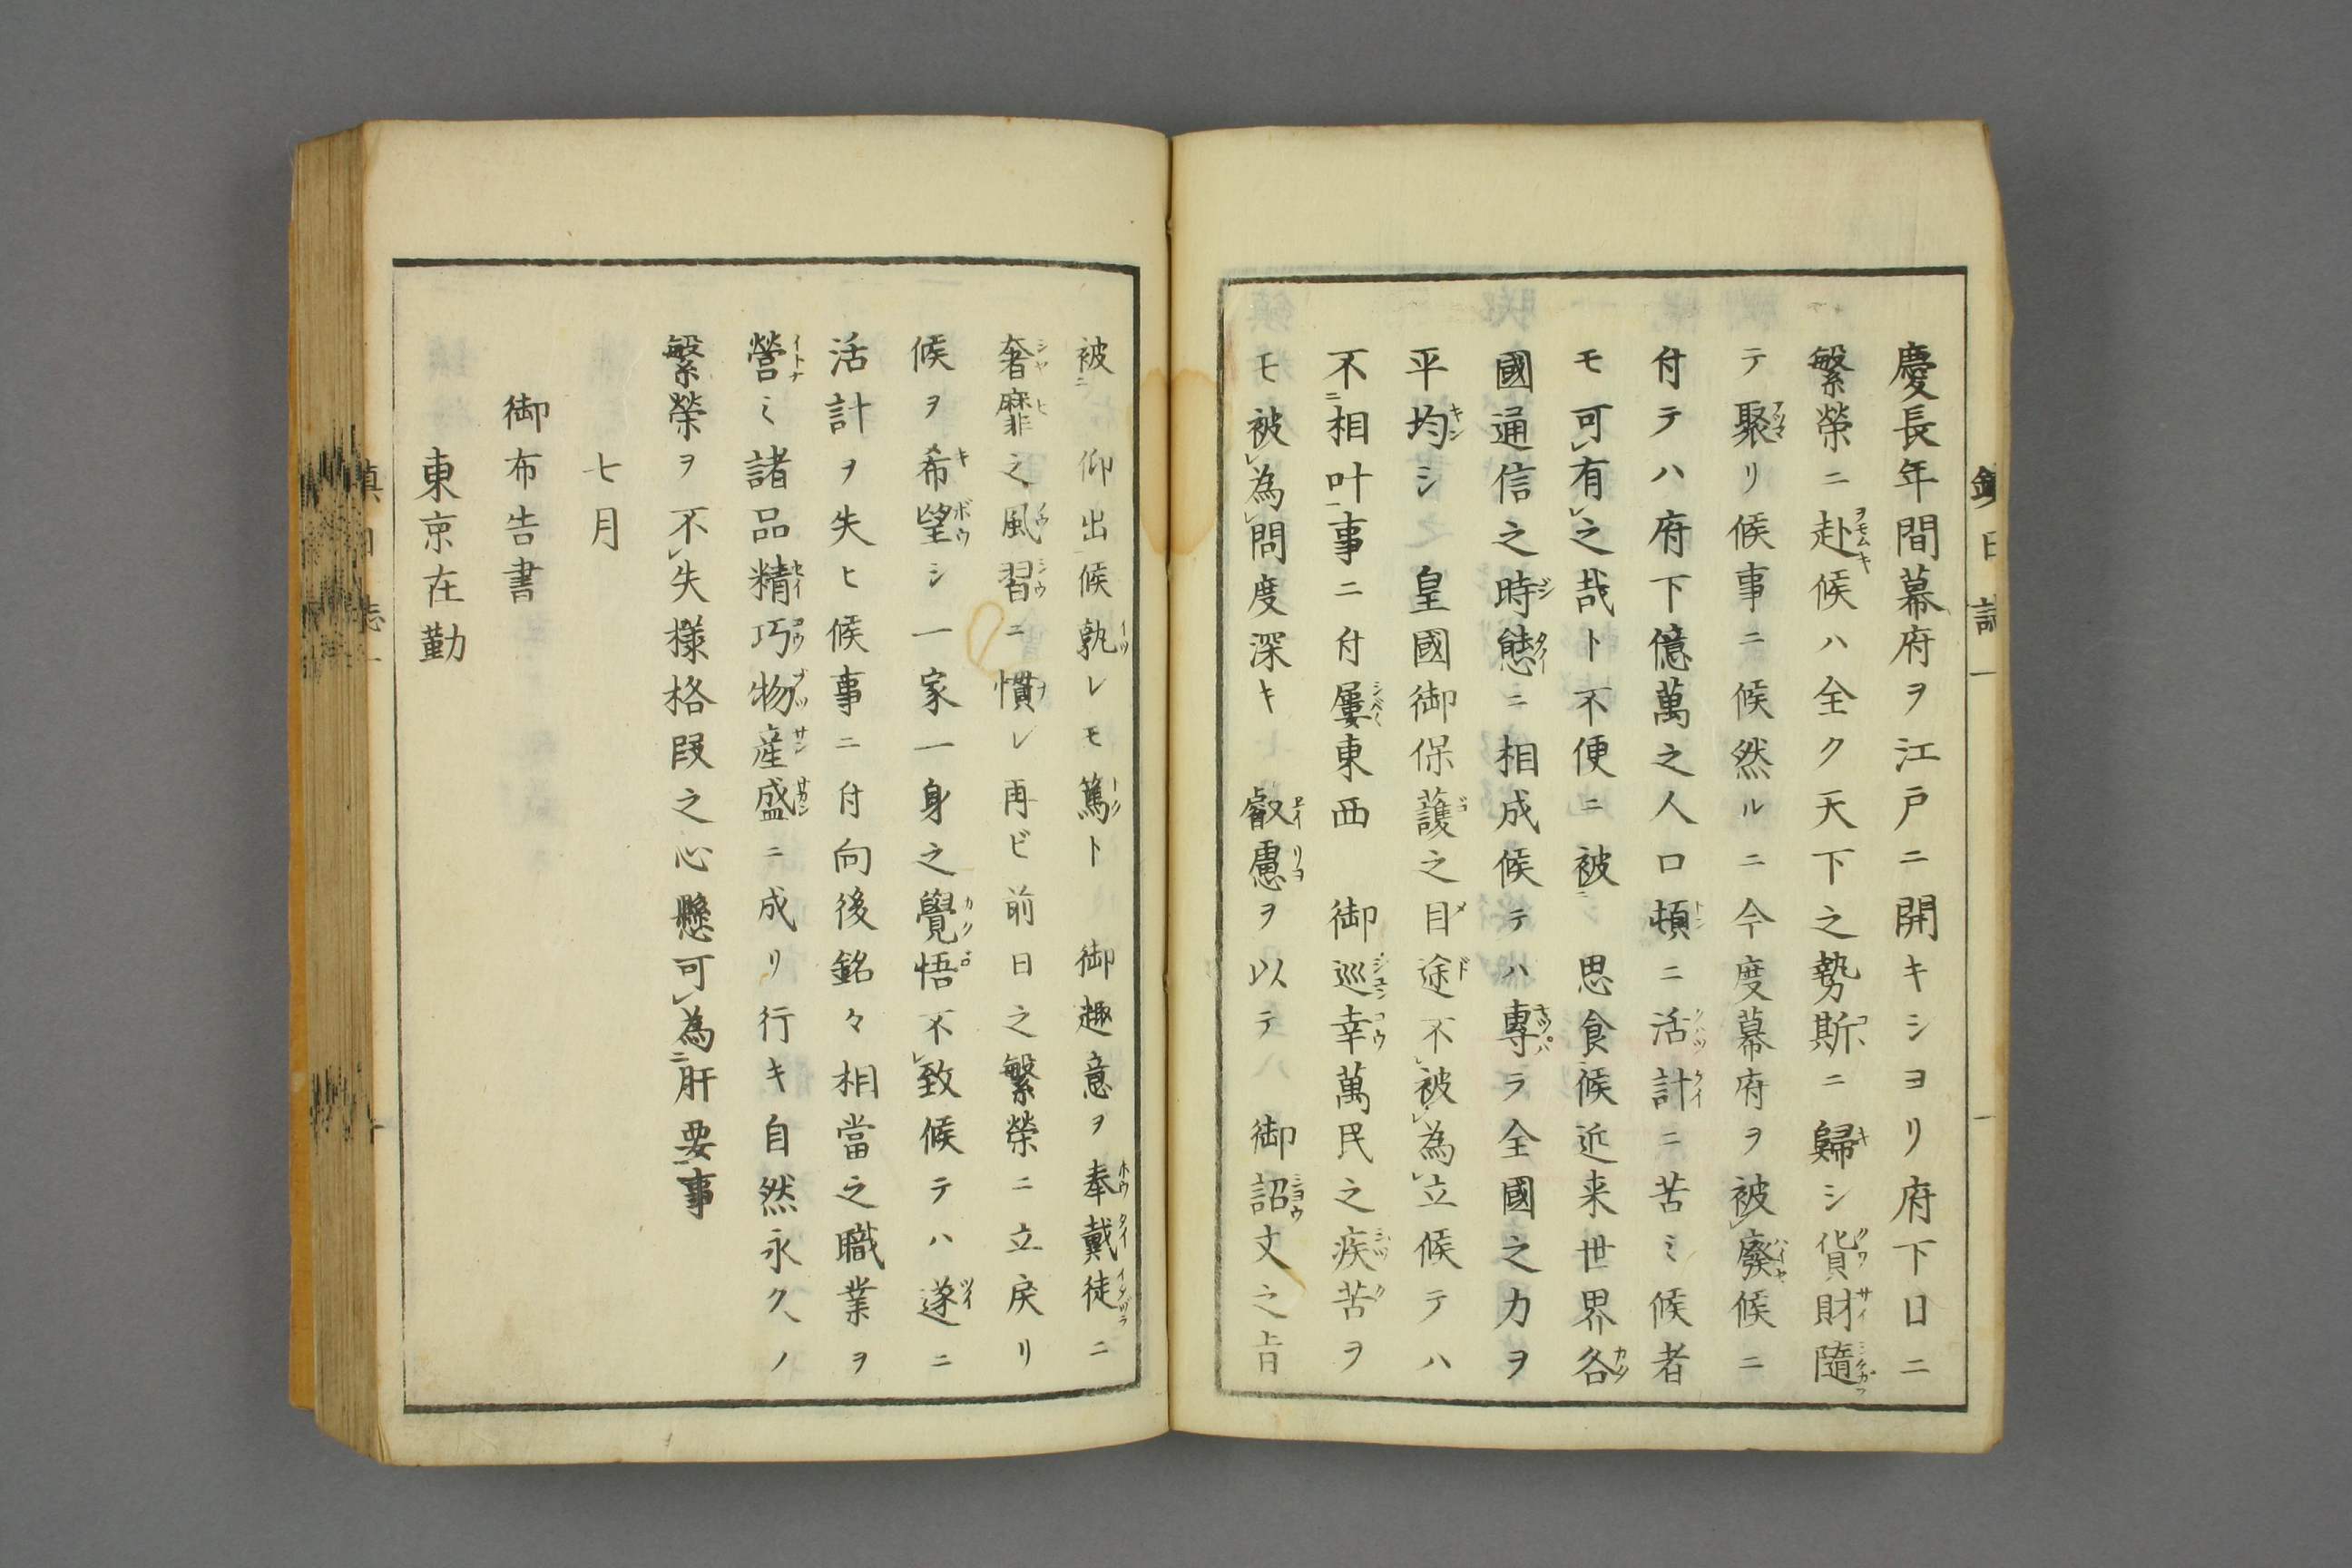 慶長年間幕府ヲ江戸ニ開キシヨリ府下日ニ
繁榮ニ赴候ハ全ク天下之勢斯ニ歸シ貨財隨
テ聚リ候事ニ候然ルニ今度幕府ヲ被廢候ニ
付テハ府下億萬之人口頓ニ活計ニ苦ミ候者
モ可有之哉ト不便ニ被 思食候近来世界各
國通信之時態ニ相成候テハ專ラ全國之力ヲ
平均シ 皇國御保護之目途不被為立候テハ
不相叶事ニ付屢東西 御巡幸萬民之疾苦ヲ
モ被為問度深キ 叡慮ヲ以テ 御詔文之旨
被 仰出候孰レモ篤ト 御趣意ヲ奉戴徒ニ
奢靡之風習ニ慣レ再ビ前日之繁榮ニ立戻リ
候ヲ希望シ一家一身之覺悟不致候テハ遂ニ
活計ヲ失ヒ候事ニ付向後銘々相當之職業ヲ
營ミ諸品精巧物産盛ニ成リ行キ自然永久ノ
繁榮ヲ不失樣格段之心懸可為肝要事
七月
御布告書
東京在勤